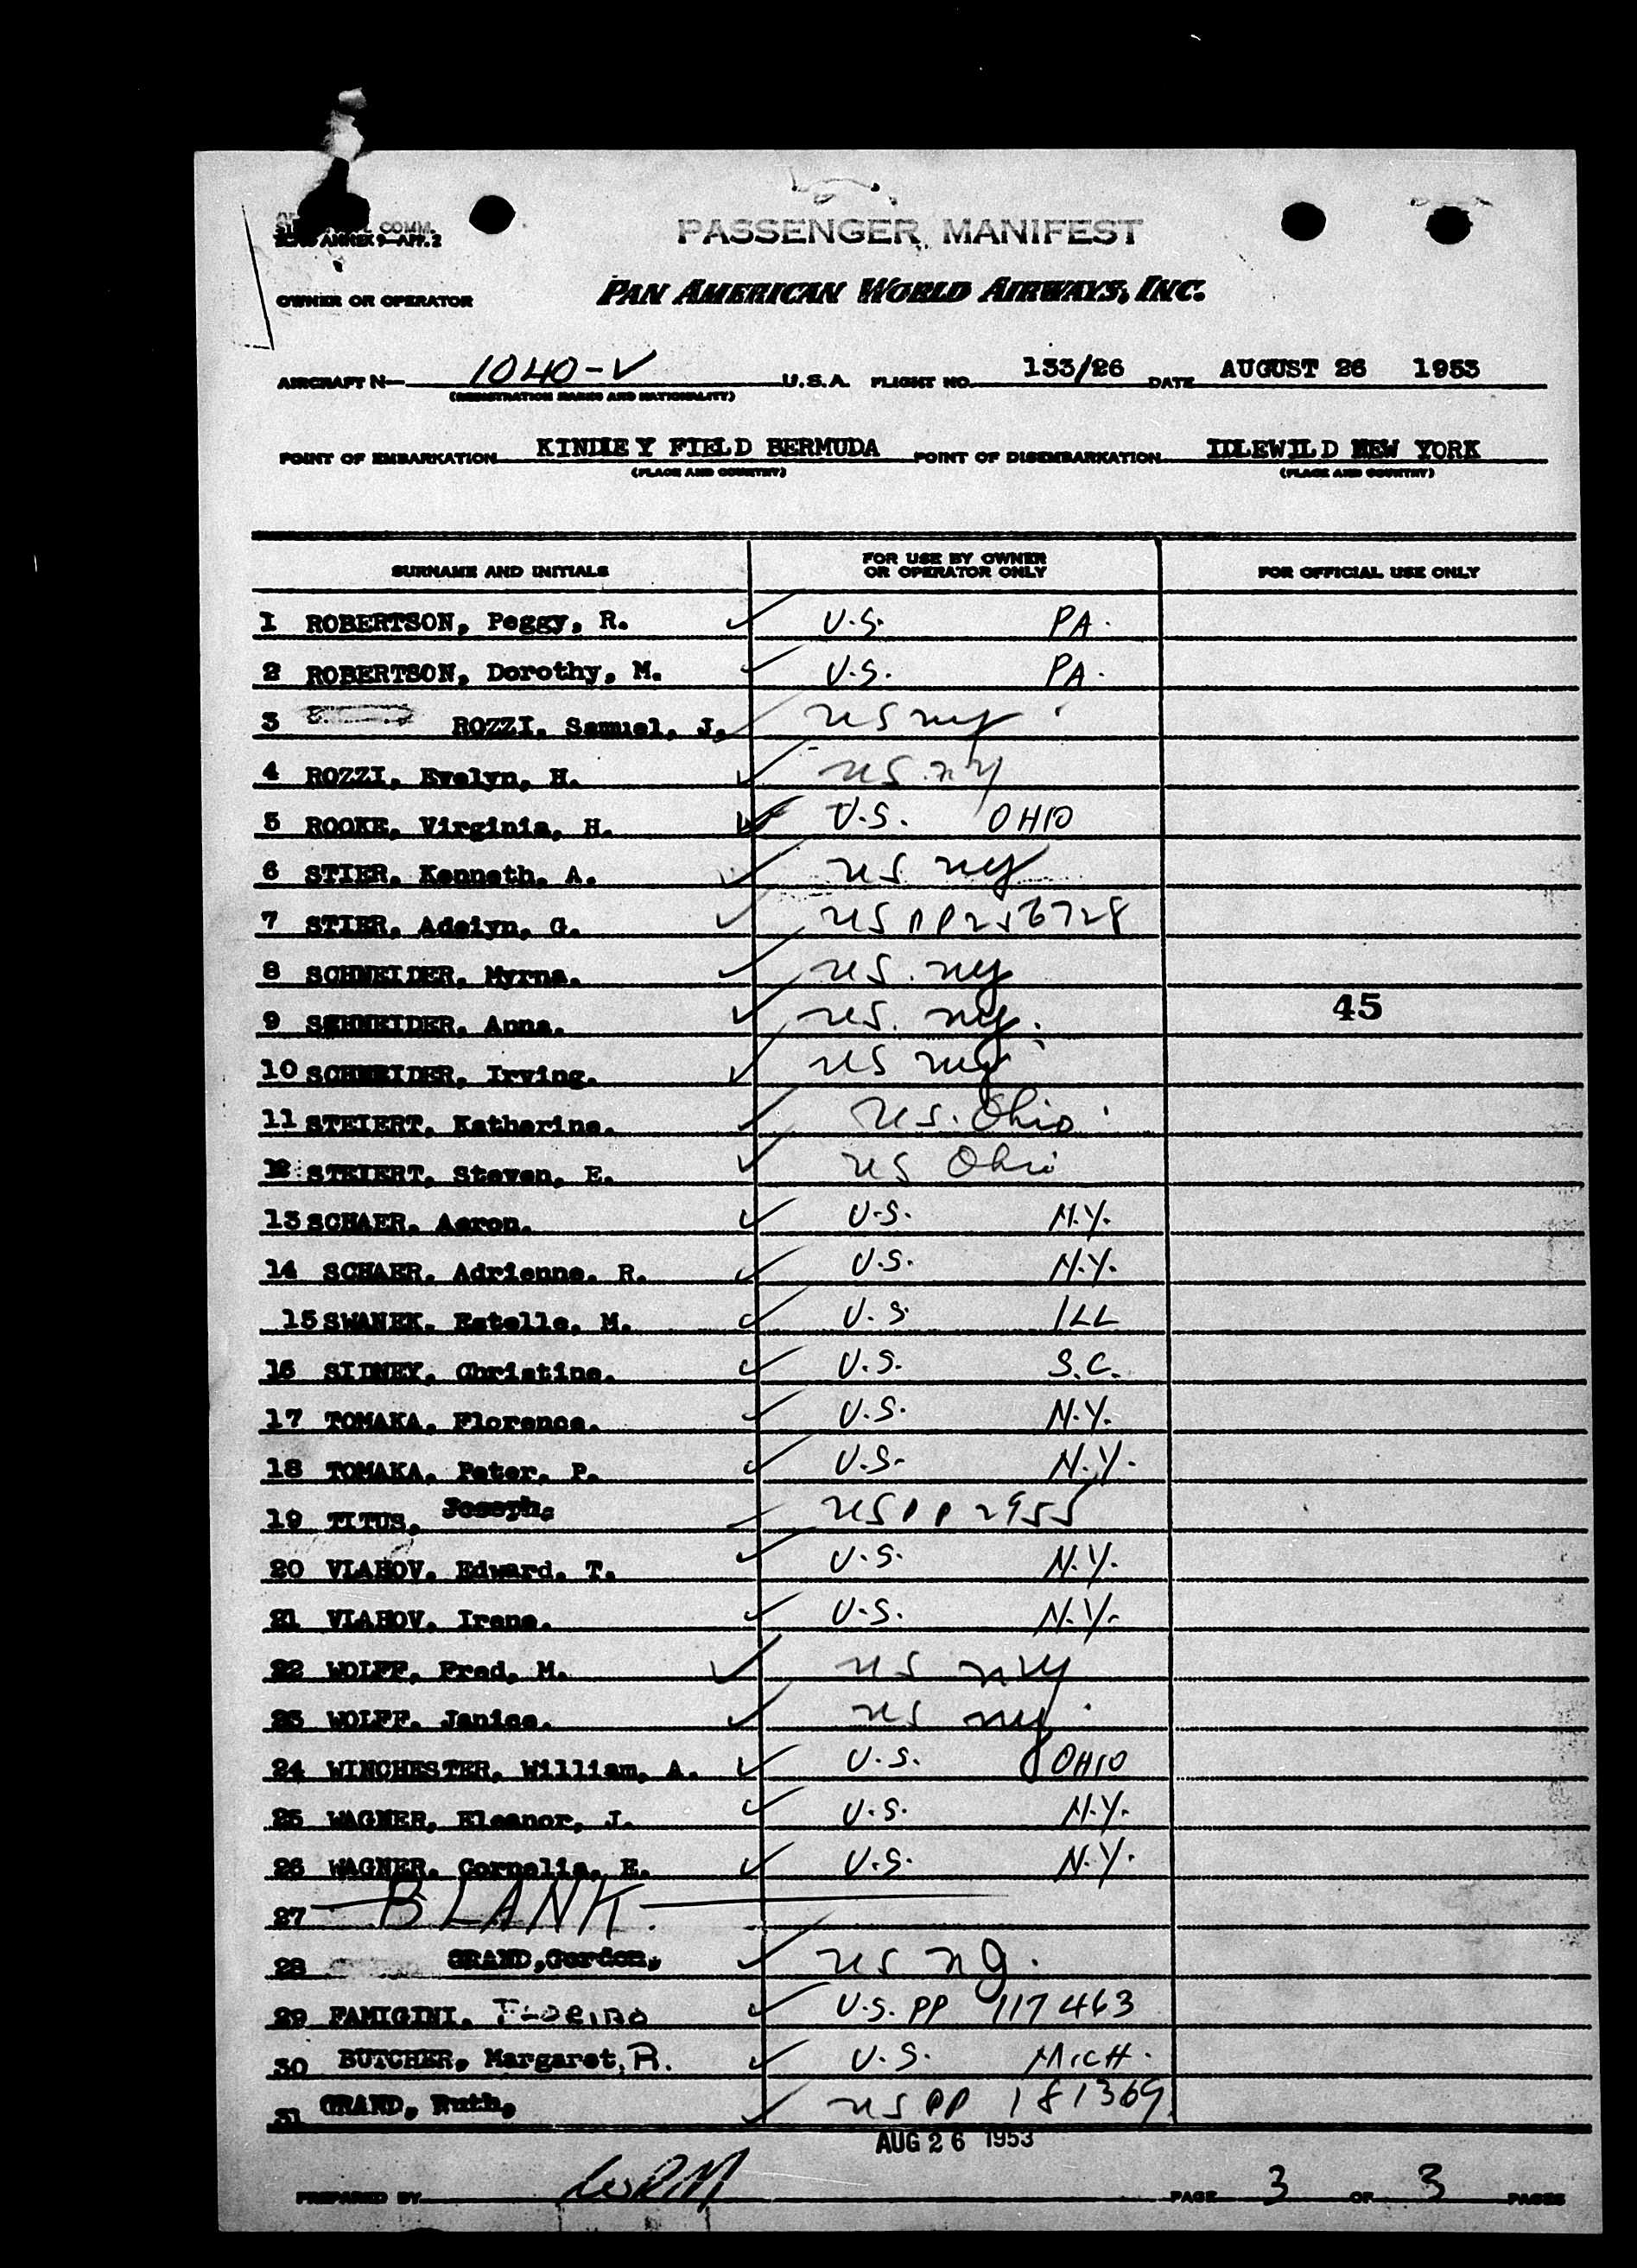 COMM.
ANNEX 9-APP. 2
PASSENGER MANIFEST
OWNER OR OPERATOR PAN AMERICAN WORLD AIRWAYS, INC.
AIRCRAFT N- 1040-V U.S.A. FLIGHT NO. 133/26 DATE AUGUST 26 1953
(REGISTRATION MARKS AND NATIONALITY)
POINT OF EMBARKATION KINDLEY FIELD BERMUDA POINT OF DISEMBARKATION IDLEWILD NEW YORK
(PLACE AND COUNTRY) (PLACE AND COUNTRY)
SURNAME AND INITIALS FOR USE BY OWNER OR OPERATOR ONLY FOR OFFICIAL USE ONLY
1 ROBERTSON, Peggy, R. U.S. PA.
2 ROBERTSON, Dorothy, M. U.S. PA.
3 ROZZI, Samuel, J. US ny
4 ROZZI, Evelyn, H. US. ny
5 ROOKE, Virginia, H. U.S. OHIO
6 STIER, Kenneth, A. US ny
7 STIER, Adelyn, G. US PP 256728
8 SCHNEIDER, Myrna. US. ny
9 SCHNEIDER, Anna. US. ny. 45
10 SCHNEIDER, Irving. US ny
11 STEIERT, Katherine. US. Ohio
12 STEIERT, Steven, E. US Ohio
13 SCHAER, Aaron. U.S. N.Y.
14 SCHAER, Adrienne, R. U.S. N.Y.
15 SWANEK, Estelle, M. U.S. ILL
16 SIDNEY, Christine. U.S. S.C.
17 TOMAKA, Florence. U.S. N.Y.
18 TOMAKA, Peter, P. U.S. N.Y.
19 TITUS, Joseph, US PP 2955
20 VLAHOV, Edward, T. U.S. N.Y.
21 VLAHOV, Irene. U.S. N.Y.
22 WOLFF, Fred, M. US ny
23 WOLFF, Janice. US ny
24 WINCHESTER, William, A. U.S. OHIO
25 WAGNER, Eleanor, J. U.S. N.Y.
26 WAGNER, Cornelia, E. U.S. N.Y.
27 —BLANK.—
28 GRAND, Gordon, US ny.
29 FAMIGINI, U.S. PP 117463
30 BUTCHER, Margaret, R. U.S. MICH.
31 GRAND, Ruth, US PP 181369
AUG 26 1953
PREPARED BY WRM PAGE 3 OF 3 PAGES